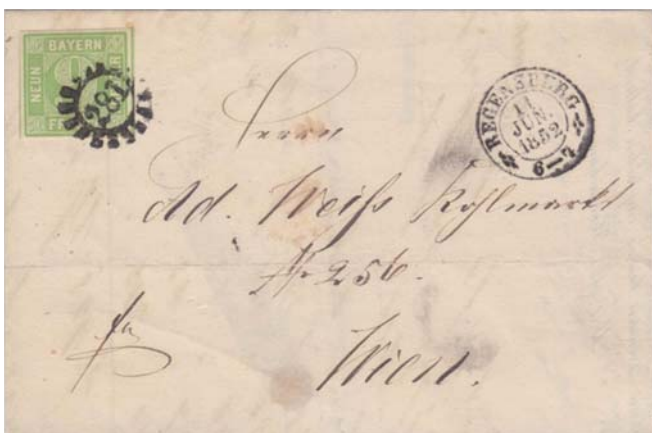 BAYERN
NEUN
281
REGENSBURG
11
JUN.
1852
6—7
Herrn
Ad. Weiß Kohlmarkt
№ 256.
Wien.